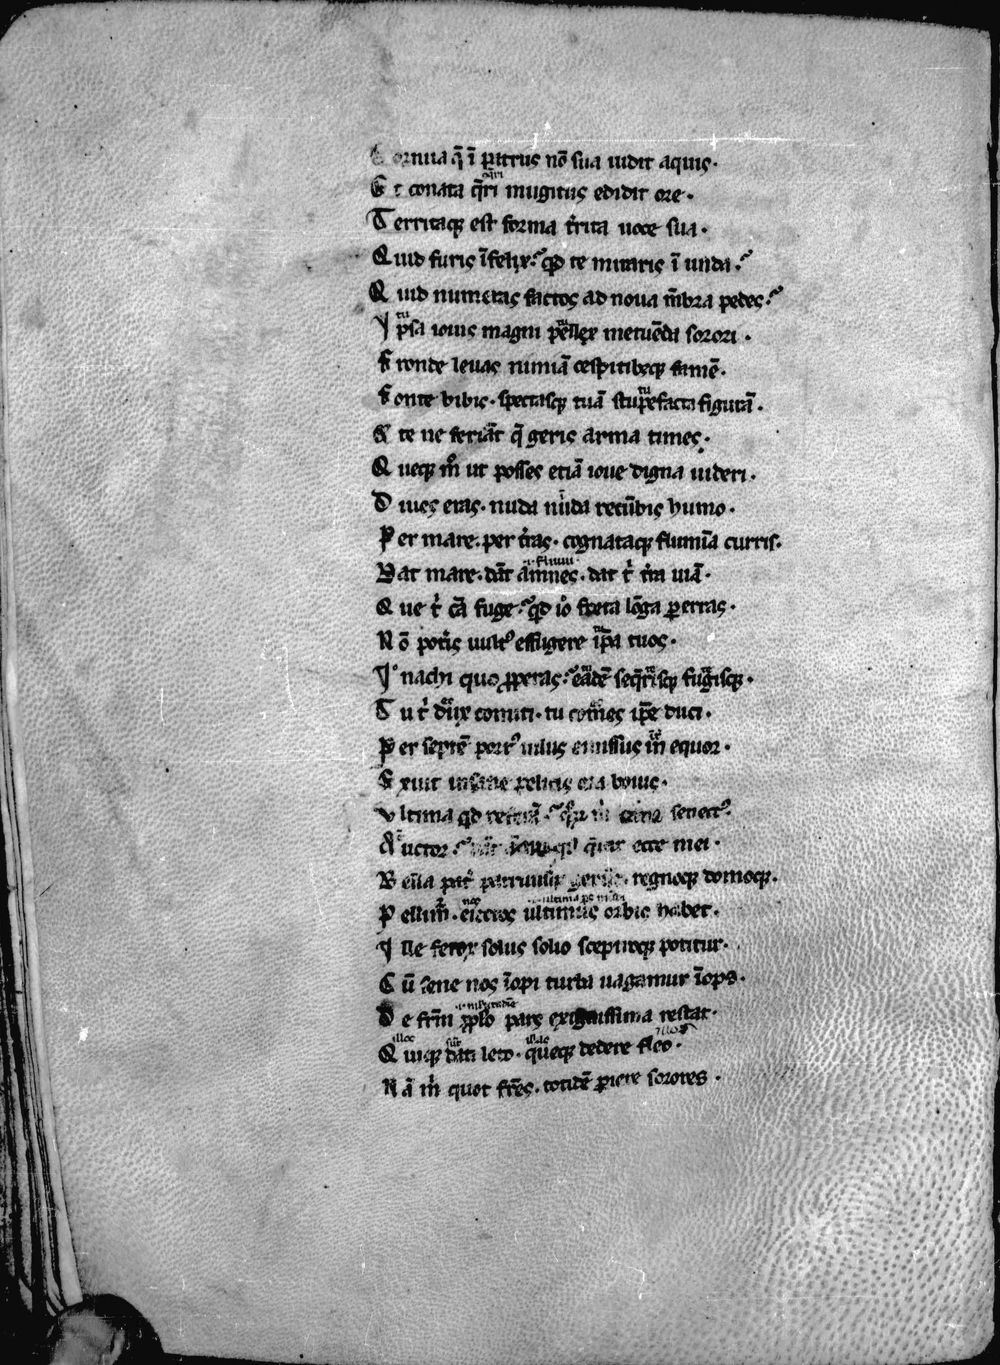 Cornua q̄ ī patriis nō sua uidit aquis·
Et conata q̄ri mugitus edidit ore·
Territaq; est forma t̓rita uoce sua·
Quid furis īfelix? qd te miraris ī unda?
Quid numeras factos ad noua mēbra pedes?
Ipsa iouis magni pellex metuēda sorori·
Fronde leuas nimiā cespitibꝫq; famē·
Fonte bibis· spectasq; tuā stupefacta figurā·
Et te ne feriāt q̄ geris arma times·
Queq; m̊ ut posses etiā ioue digna uideri·
Diues eras· nuda nuda recūbis humo·
Per mare· per t̓ras· cognataq; flumīa curris·
Dat mare· dāt amnes· dat t̓ t̓ra uiā·
Que t̓ cā fuge? qd io freta lōga ꝑerras·
Nō pot̓is uult᾽ effugere ip̄a tuos·
Inachi quo ꝓperas? eadē seq̄risq; fugisq;·
Tu t̓ dux comiti· tu comes ip̄e duci·
Per septē port᾽ nilus emissus in equor·
Exuit insane pelicis ora bouis·
Vltima qd referā? senect᾽·
Auctor? ecce mei·
Bella pat̓ patruusq; gerūt· regnoq; domoq;·
Pellim̄· eiectos ultimus orbis habet·
Ille ferox solus solio sceptroq; potitur·
Cū sene nos īopi turba uagamur īops·
De frm̄ pplo pars exiguissima restat·
Quiq; dati leto· queq; dedere fleo·
Nā m̓ quot frēs· totidē ꝑiere sorores·